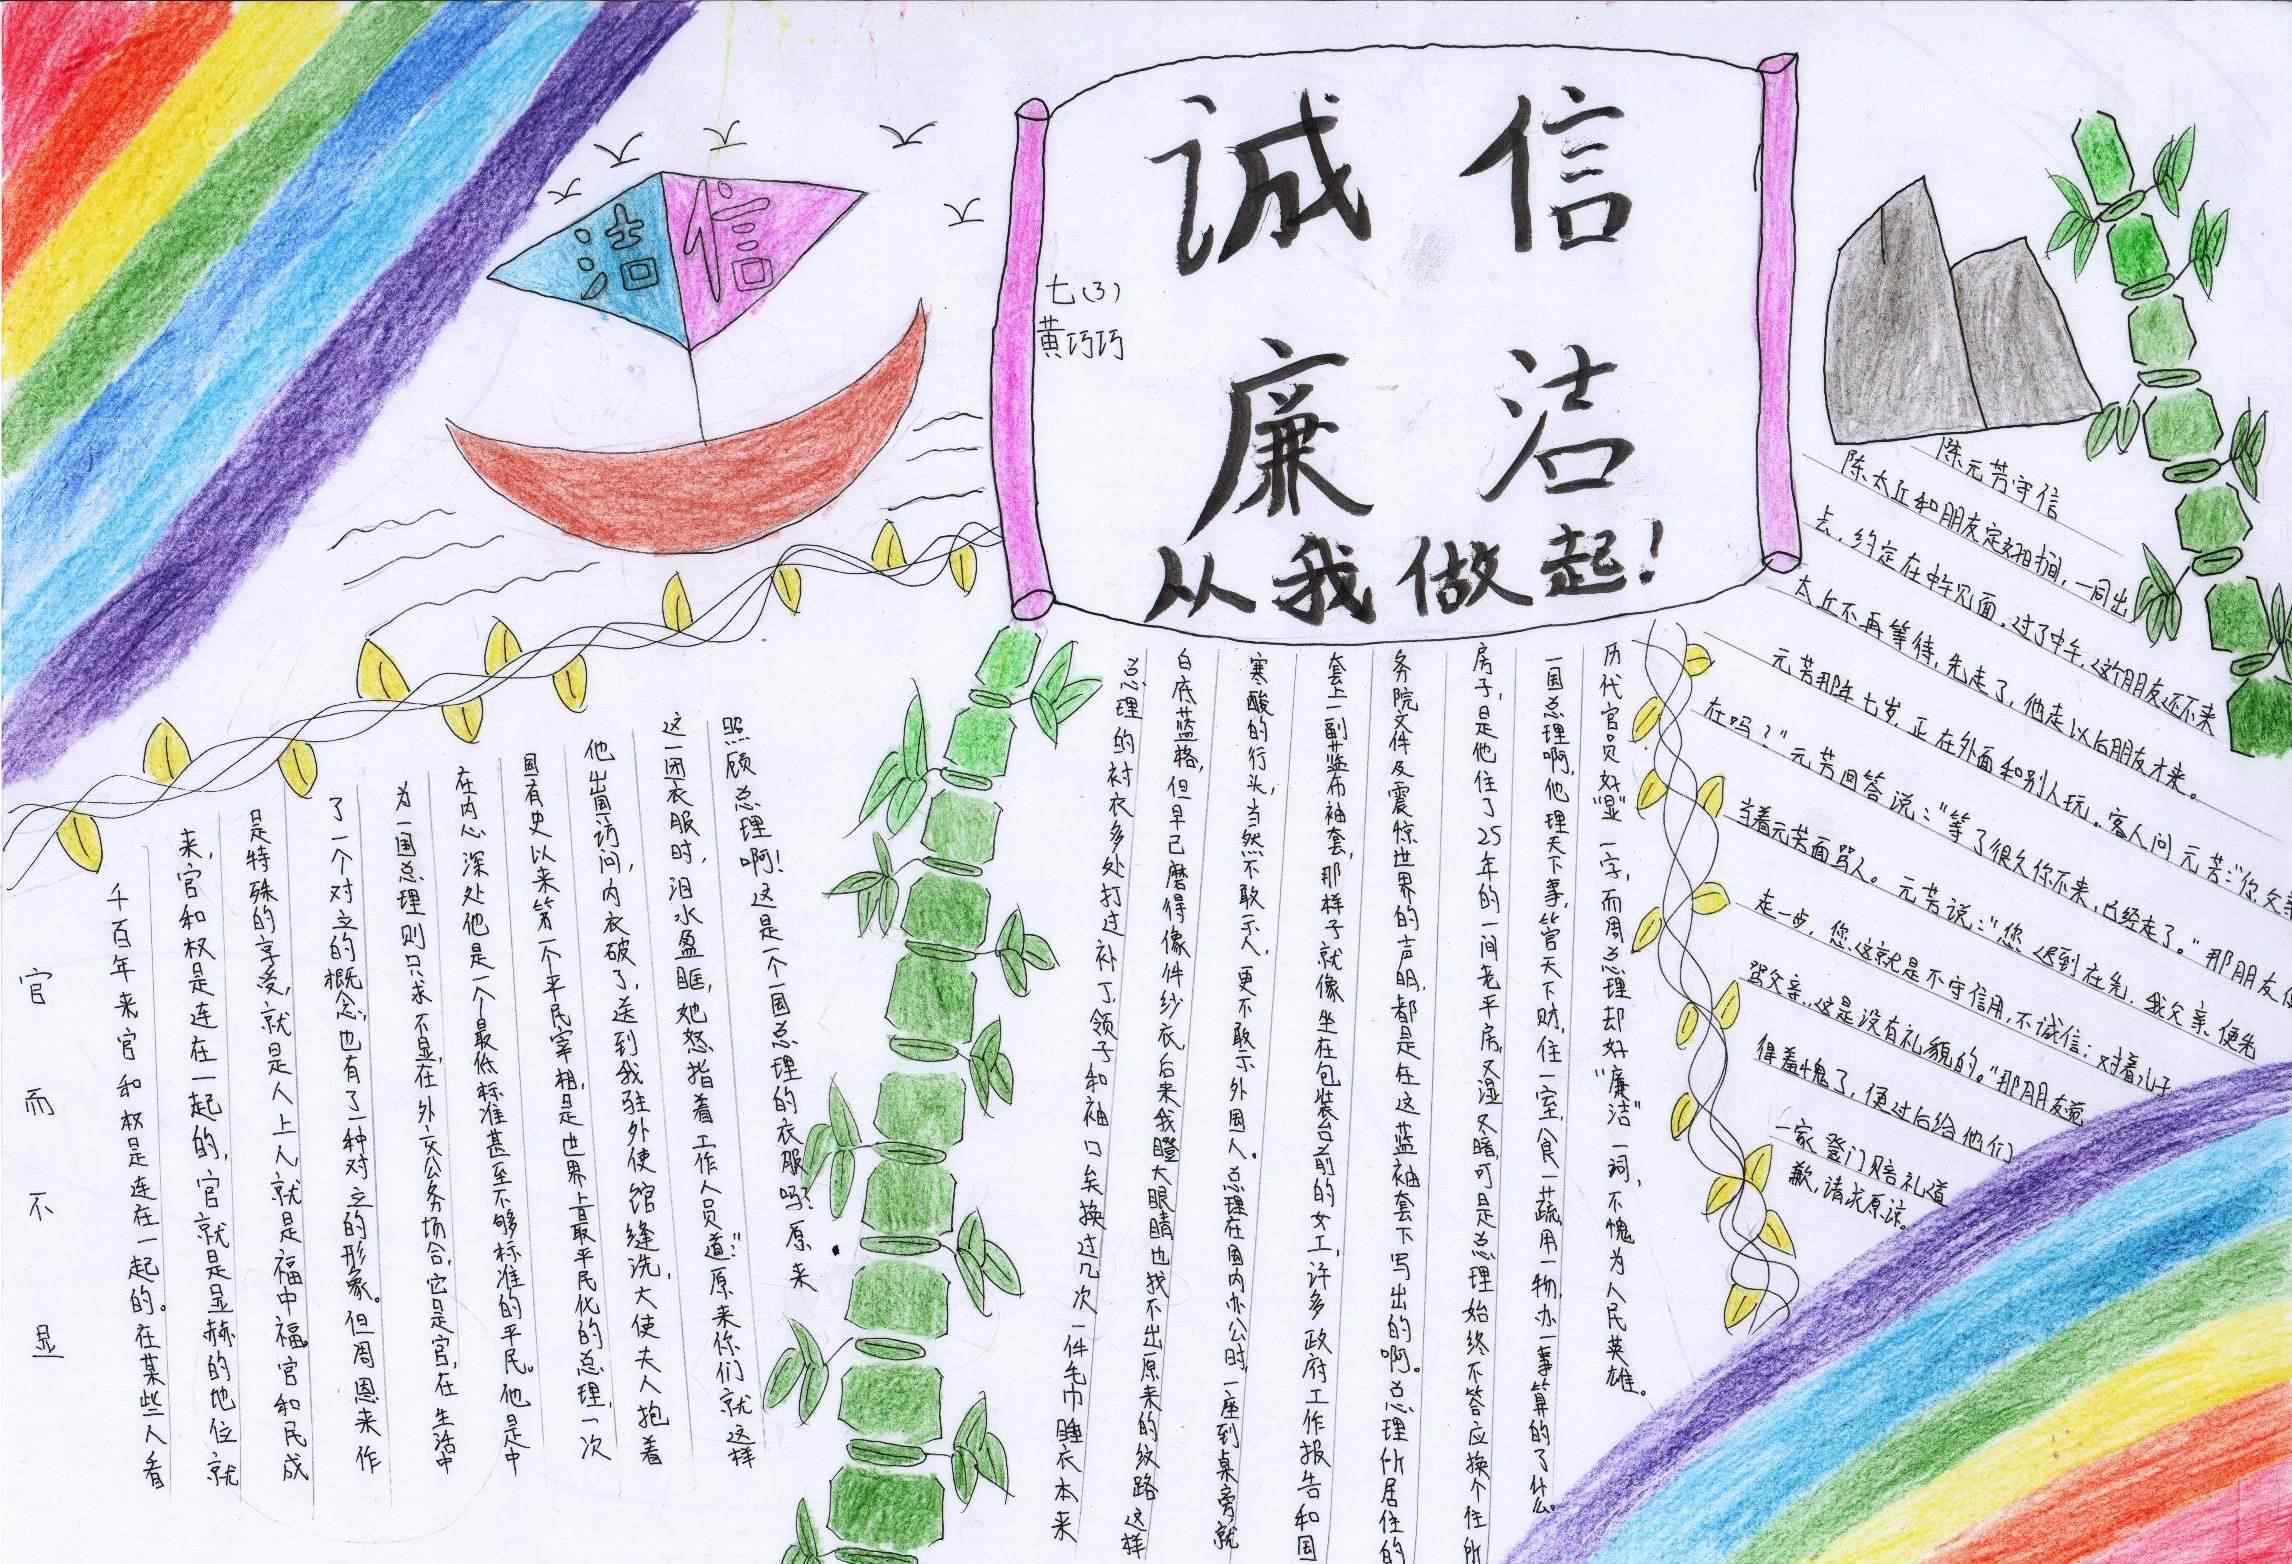 诚信
廉洁
从我做起!
七(3)
黄巧巧
洁信
官而不显
千百年来官和权是连在一起的。在某些人看
来,官和权是连在一起的,官就是显赫的地位就
是特殊的享受,就是人上人就是福中福。官和民成
了一个对立的概念,也有了一种对立的形象。但周恩来作
为一国总理则只求不显,在外交公务场合,它是官,在生活中
在内心深处他是一个最低标准甚至不够标准的平民。他是中
国有史以来第一个平民宰相,是世界上最平民化的总理,一次
他出国访问,内衣破了,送到我驻外使馆缝洗,大使夫人抱着
这一团衣服时,泪水盈眶,她怒指着工作人员道:“原来你们就这样
照顾总理啊!这是一个国总理的衣服吗?原来
总理的衬衣多处打过补丁,领子和袖口矣换过几次一件毛巾睡衣本来
白底蓝格,但早已磨得像件纱衣后来我瞪大眼睛也找不出原来的纹路这样
寒酸的行头,当然不敢示人,更不敢示外国人。总理在国内办公时,一座到桌旁就
套上一副蓝布袖套,那样子就像坐在包装台前的女工,许多政府工作报告和国
务院文件及震惊世界的声明,都是在这蓝袖套下写出的啊。总理所居住的
房子,是他住了25年的一间老平房,又湿又暗,可是总理始终不答应换个住所
一国总理啊,他理天下事,管天下财,住一室,食一蔬,用一物,办一事算的了什么
历代官员好“显”一字,而周总理却好“廉洁”一词,不愧为人民英雄。
陈元芳守信
陈太丘和朋友定好时间,一同出
去,约定在中午见面。过了中午,这个朋友还不来
太丘不再等待,先走了,他走以后朋友才来。
元芳那年七岁,正在外面和别人玩。客人问元芳:“你父亲
在吗?”元芳回答说:“等了很久你不来,已经走了。”那朋友便
当着元芳面骂人。元芳说:“您迟到在先,我父亲便先
走一步,您这就是不守信用,不诚信;对着儿子
骂父亲,这是没有礼貌的。”那朋友觉
得羞愧了,便过后给他们
一家登门赔礼道
歉,请求原谅。